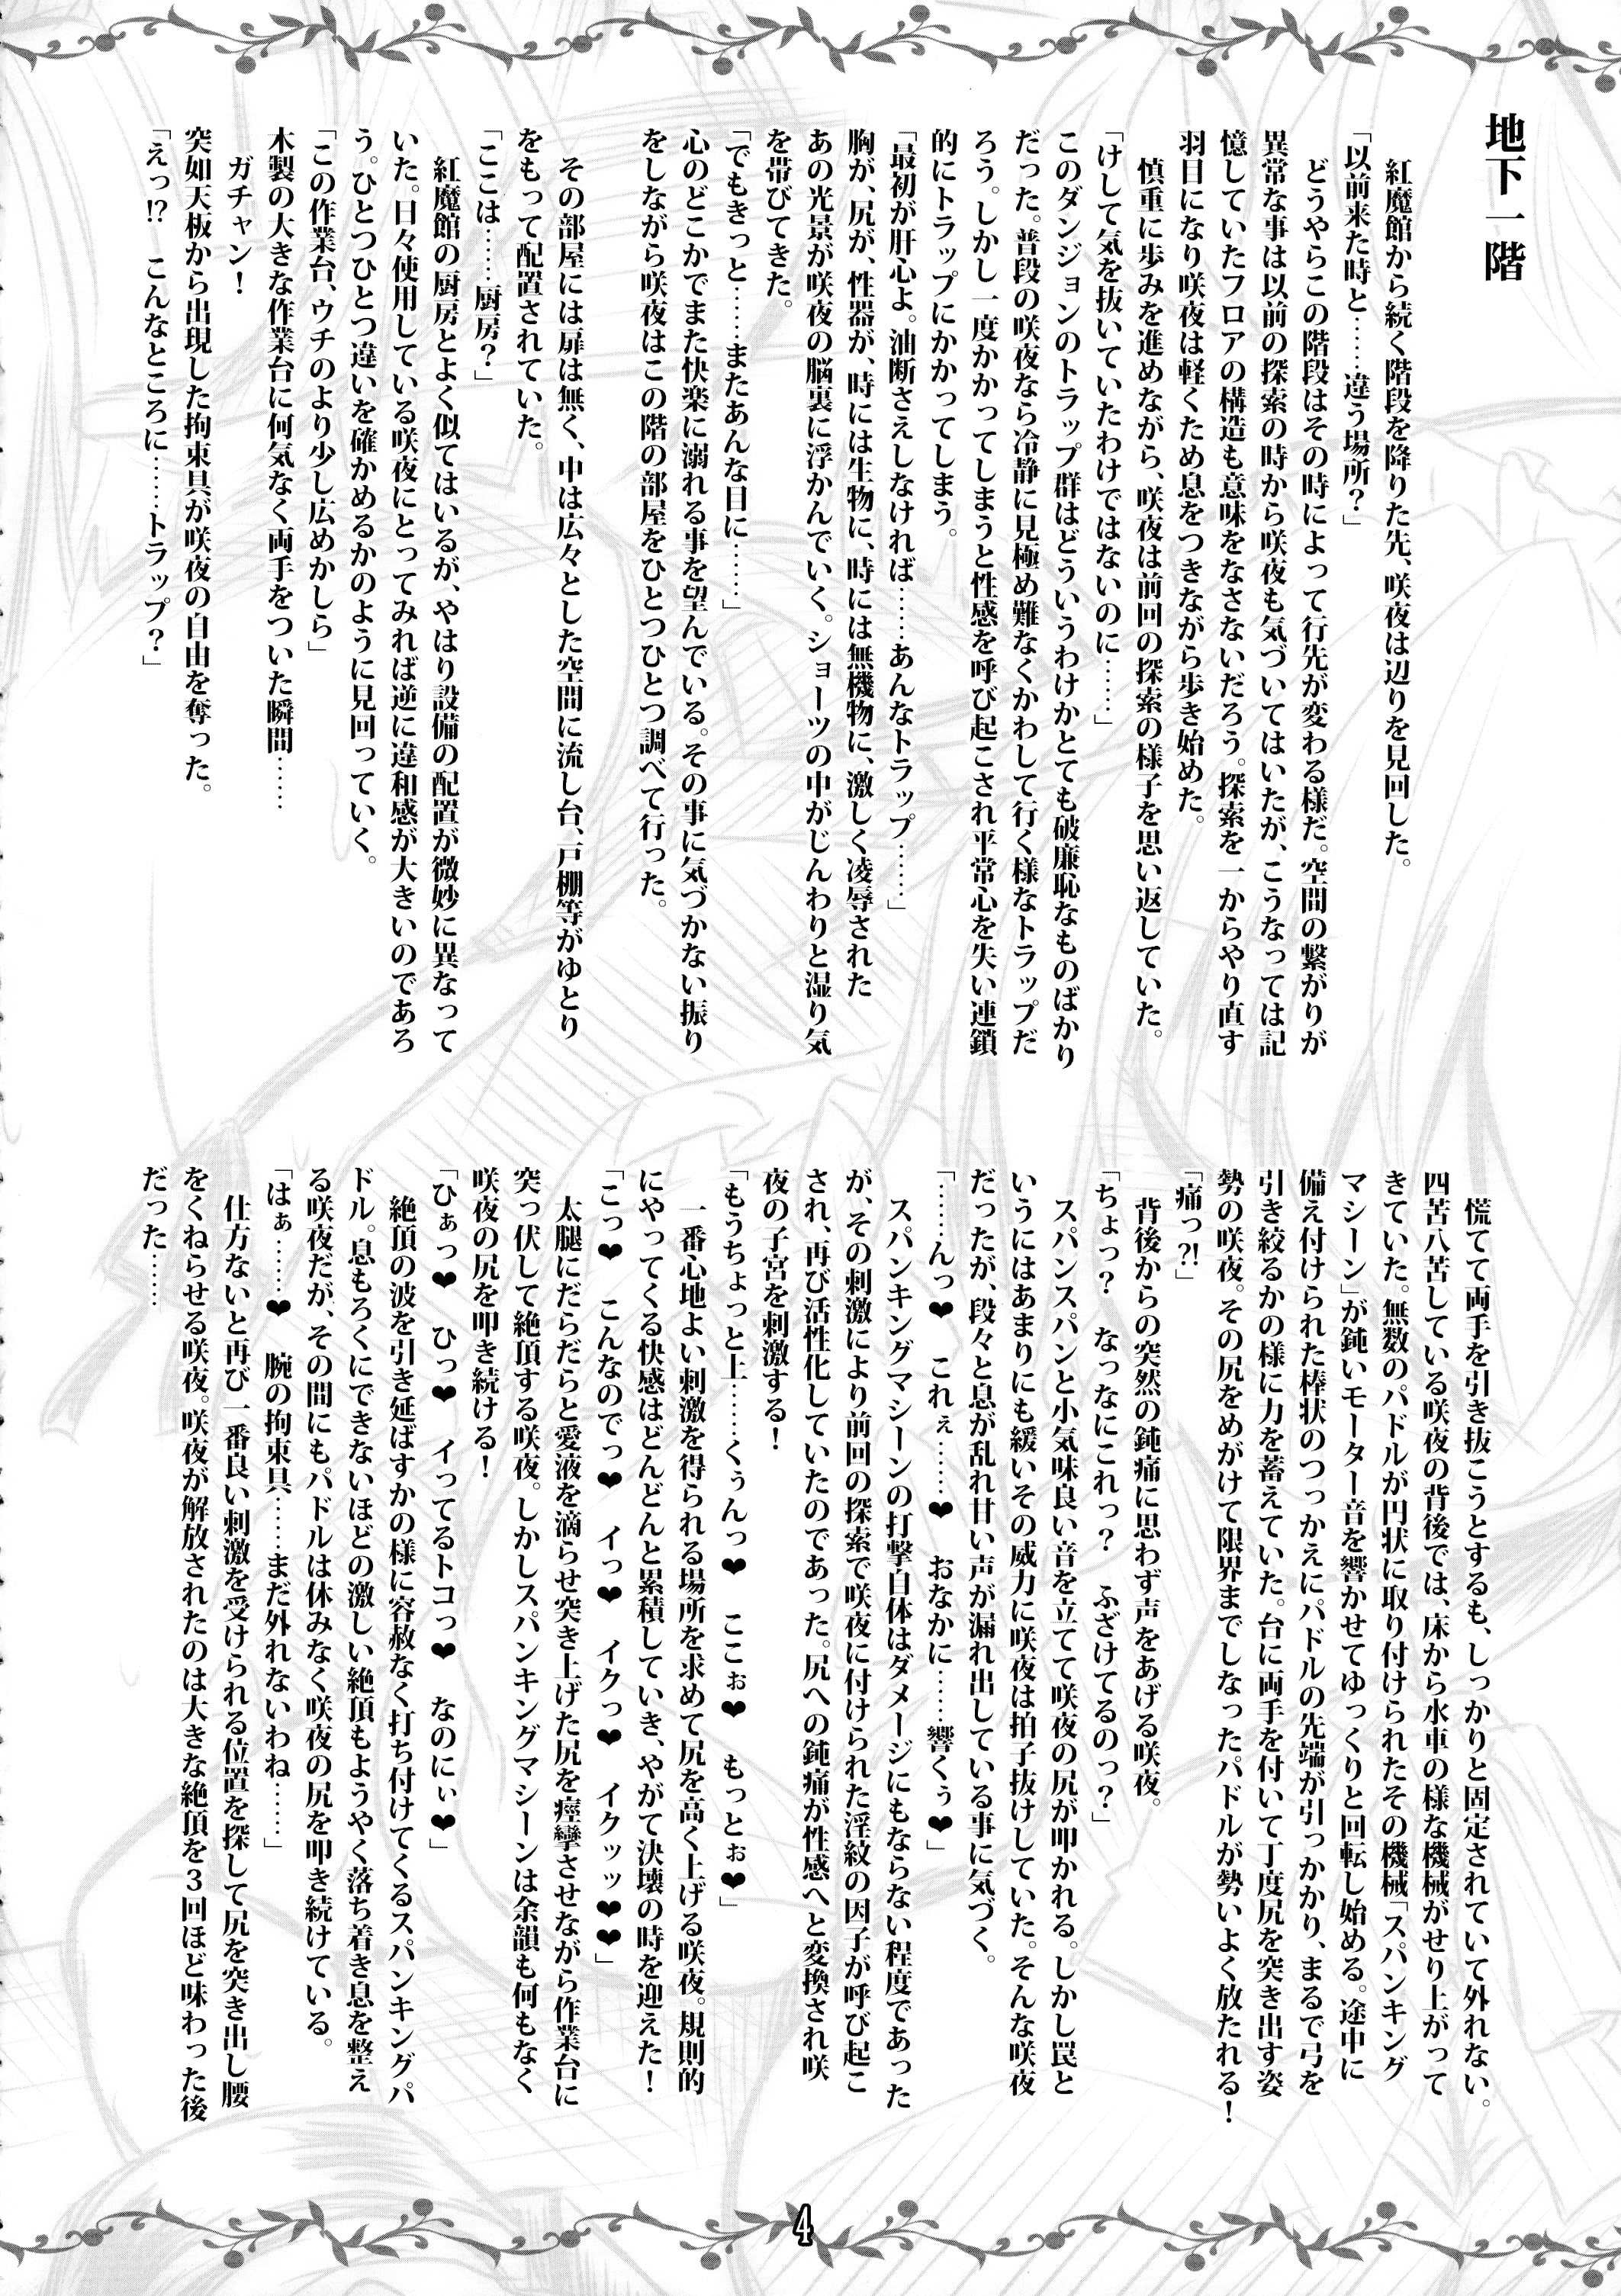 地下一階
紅魔館から続く階段を降りた先、咲夜は辺りを見回した。
「以前来た時と……違う場所？」
どうやらこの階段はその時によって行先が変わる様だ。空間の繋がりが
異常な事は以前の探索の時から咲夜も気づいてはいたが、こうなっては記
憶していたフロアの構造も意味をなさないだろう。探索を一からやり直す
羽目になり咲夜は軽くため息をつきながら歩き始めた。
慎重に歩みを進めながら、咲夜は前回の探索の様子を思い返していた。
「けして気を抜いていたわけではないのに……」
このダンジョンのトラップ群はどういうわけかとても破廉恥なものばかり
だった。普段の咲夜なら冷静に見極め難なくかわして行く様なトラップだ
ろう。しかし一度かかってしまうと性感を呼び起こされ平常心を失い連鎖
的にトラップにかかってしまう。
「最初が肝心よ。油断さえしなければ……あんなトラップ……」
胸が、尻が、性器が、時には生物に、時には無機物に、激しく凌辱された
あの光景が咲夜の脳裏に浮かんでいく。ショーツの中がじんわりと湿り気
を帯びてきた。
「でもきっと……またあんな目に……」
心のどこかでまた快楽に溺れる事を望んでいる。その事に気づかない振り
をしながら咲夜はこの階の部屋をひとつひとつ調べて行った。
その部屋には扉は無く、中は広々とした空間に流し台、戸棚等がゆとり
をもって配置されていた。
「ここは……厨房？」
紅魔館の厨房とよく似てはいるが、やはり設備の配置が微妙に異なって
いた。日々使用している咲夜にとってみれば逆に違和感が大きいのであろ
う。ひとつひとつ違いを確かめるかのように見回っていく。
「この作業台、ウチのより少し広めかしら」
木製の大きな作業台に何気なく両手をついた瞬間……
ガチャン！
突如天板から出現した拘束具が咲夜の自由を奪った。
「えっ!?　こんなところに……トラップ？」
慌てて両手を引き抜こうとするも、しっかりと固定されていて外れない。
四苦八苦している咲夜の背後では、床から水車の様な機械がせり上がって
きていた。無数のパドルが円状に取り付けられたその機械「スパンキング
マシーン」が鈍いモーター音を響かせてゆっくりと回転し始める。途中に
備え付けられた棒状のつっかえにパドルの先端が引っかかり、まるで弓を
引き絞るかの様に力を蓄えていた。台に両手を付いて丁度尻を突き出す姿
勢の咲夜。その尻をめがけて限界までしなったパドルが勢いよく放たれる！
「痛っ?!」
背後からの突然の鈍痛に思わず声をあげる咲夜。
「ちょっ？　なっなにこれっ？　ふざけてるのっ？」
スパンスパンと小気味良い音を立てて咲夜の尻が叩かれる。しかし罠と
いうにはあまりにも緩いその威力に咲夜は拍子抜けしていた。そんな咲夜
だったが、段々と息が乱れ甘い声が漏れ出している事に気づく。
「……んっ❤　これぇ……❤　おなかに……響くぅ❤」
スパンキングマシーンの打撃自体はダメージにもならない程度であった
が、その刺激により前回の探索で咲夜に付けられた淫紋の因子が呼び起こ
され、再び活性化していたのであった。尻への鈍痛が性感へと変換され咲
夜の子宮を刺激する！
「もうちょっと上……くぅんっ❤　ここぉ❤　もっとぉ❤」
一番心地よい刺激を得られる場所を求めて尻を高く上げる咲夜。規則的
にやってくる快感はどんどんと累積していき、やがて決壊の時を迎えた！
「こっ❤　こんなのでっ❤　イっ❤　イクっ❤　イクッッ❤❤」
太腿にだらだらと愛液を滴らせ突き上げた尻を痙攣させながら作業台に
突っ伏して絶頂する咲夜。しかしスパンキングマシーンは余韻も何もなく
咲夜の尻を叩き続ける！
「ひぁっ❤　ひっ❤　イってるトコっ❤　なのにぃ❤」
絶頂の波を引き延ばすかの様に容赦なく打ち付けてくるスパンキングパ
ドル。息もろくにできないほどの激しい絶頂もようやく落ち着き息を整え
る咲夜だが、その間にもパドルは休みなく咲夜の尻を叩き続けている。
「はぁ……❤　腕の拘束具……まだ外れないわね……」
仕方ないと再び一番良い刺激を受けられる位置を探して尻を突き出し腰
をくねらせる咲夜。咲夜が解放されたのは大きな絶頂を３回ほど味わった後
だった……
4